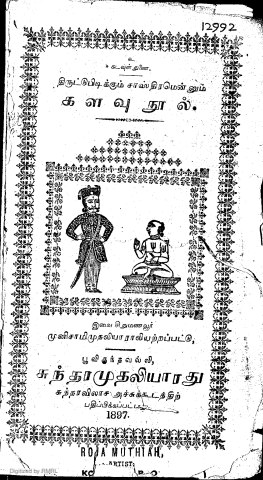 12992
உ
கடவுள் துணை.
திருட்டுபிடிக்கும் சாஸ்திரமென்னும்
களவு நூல்.
இவை சிறுமணவூர்
முனிசாமிமுதலியாராலியற்றப்பட்டு,
பூவிருந்தவல்லி,
சுந்தரமுதலியாரது
சுந்தரவிலாச அச்சுக்கூடத்திற்
பதிப்பிக்கப்பட்டது.
1897.
ROJA MUTHIAH,
ARTIST:
Digitized by RMRL